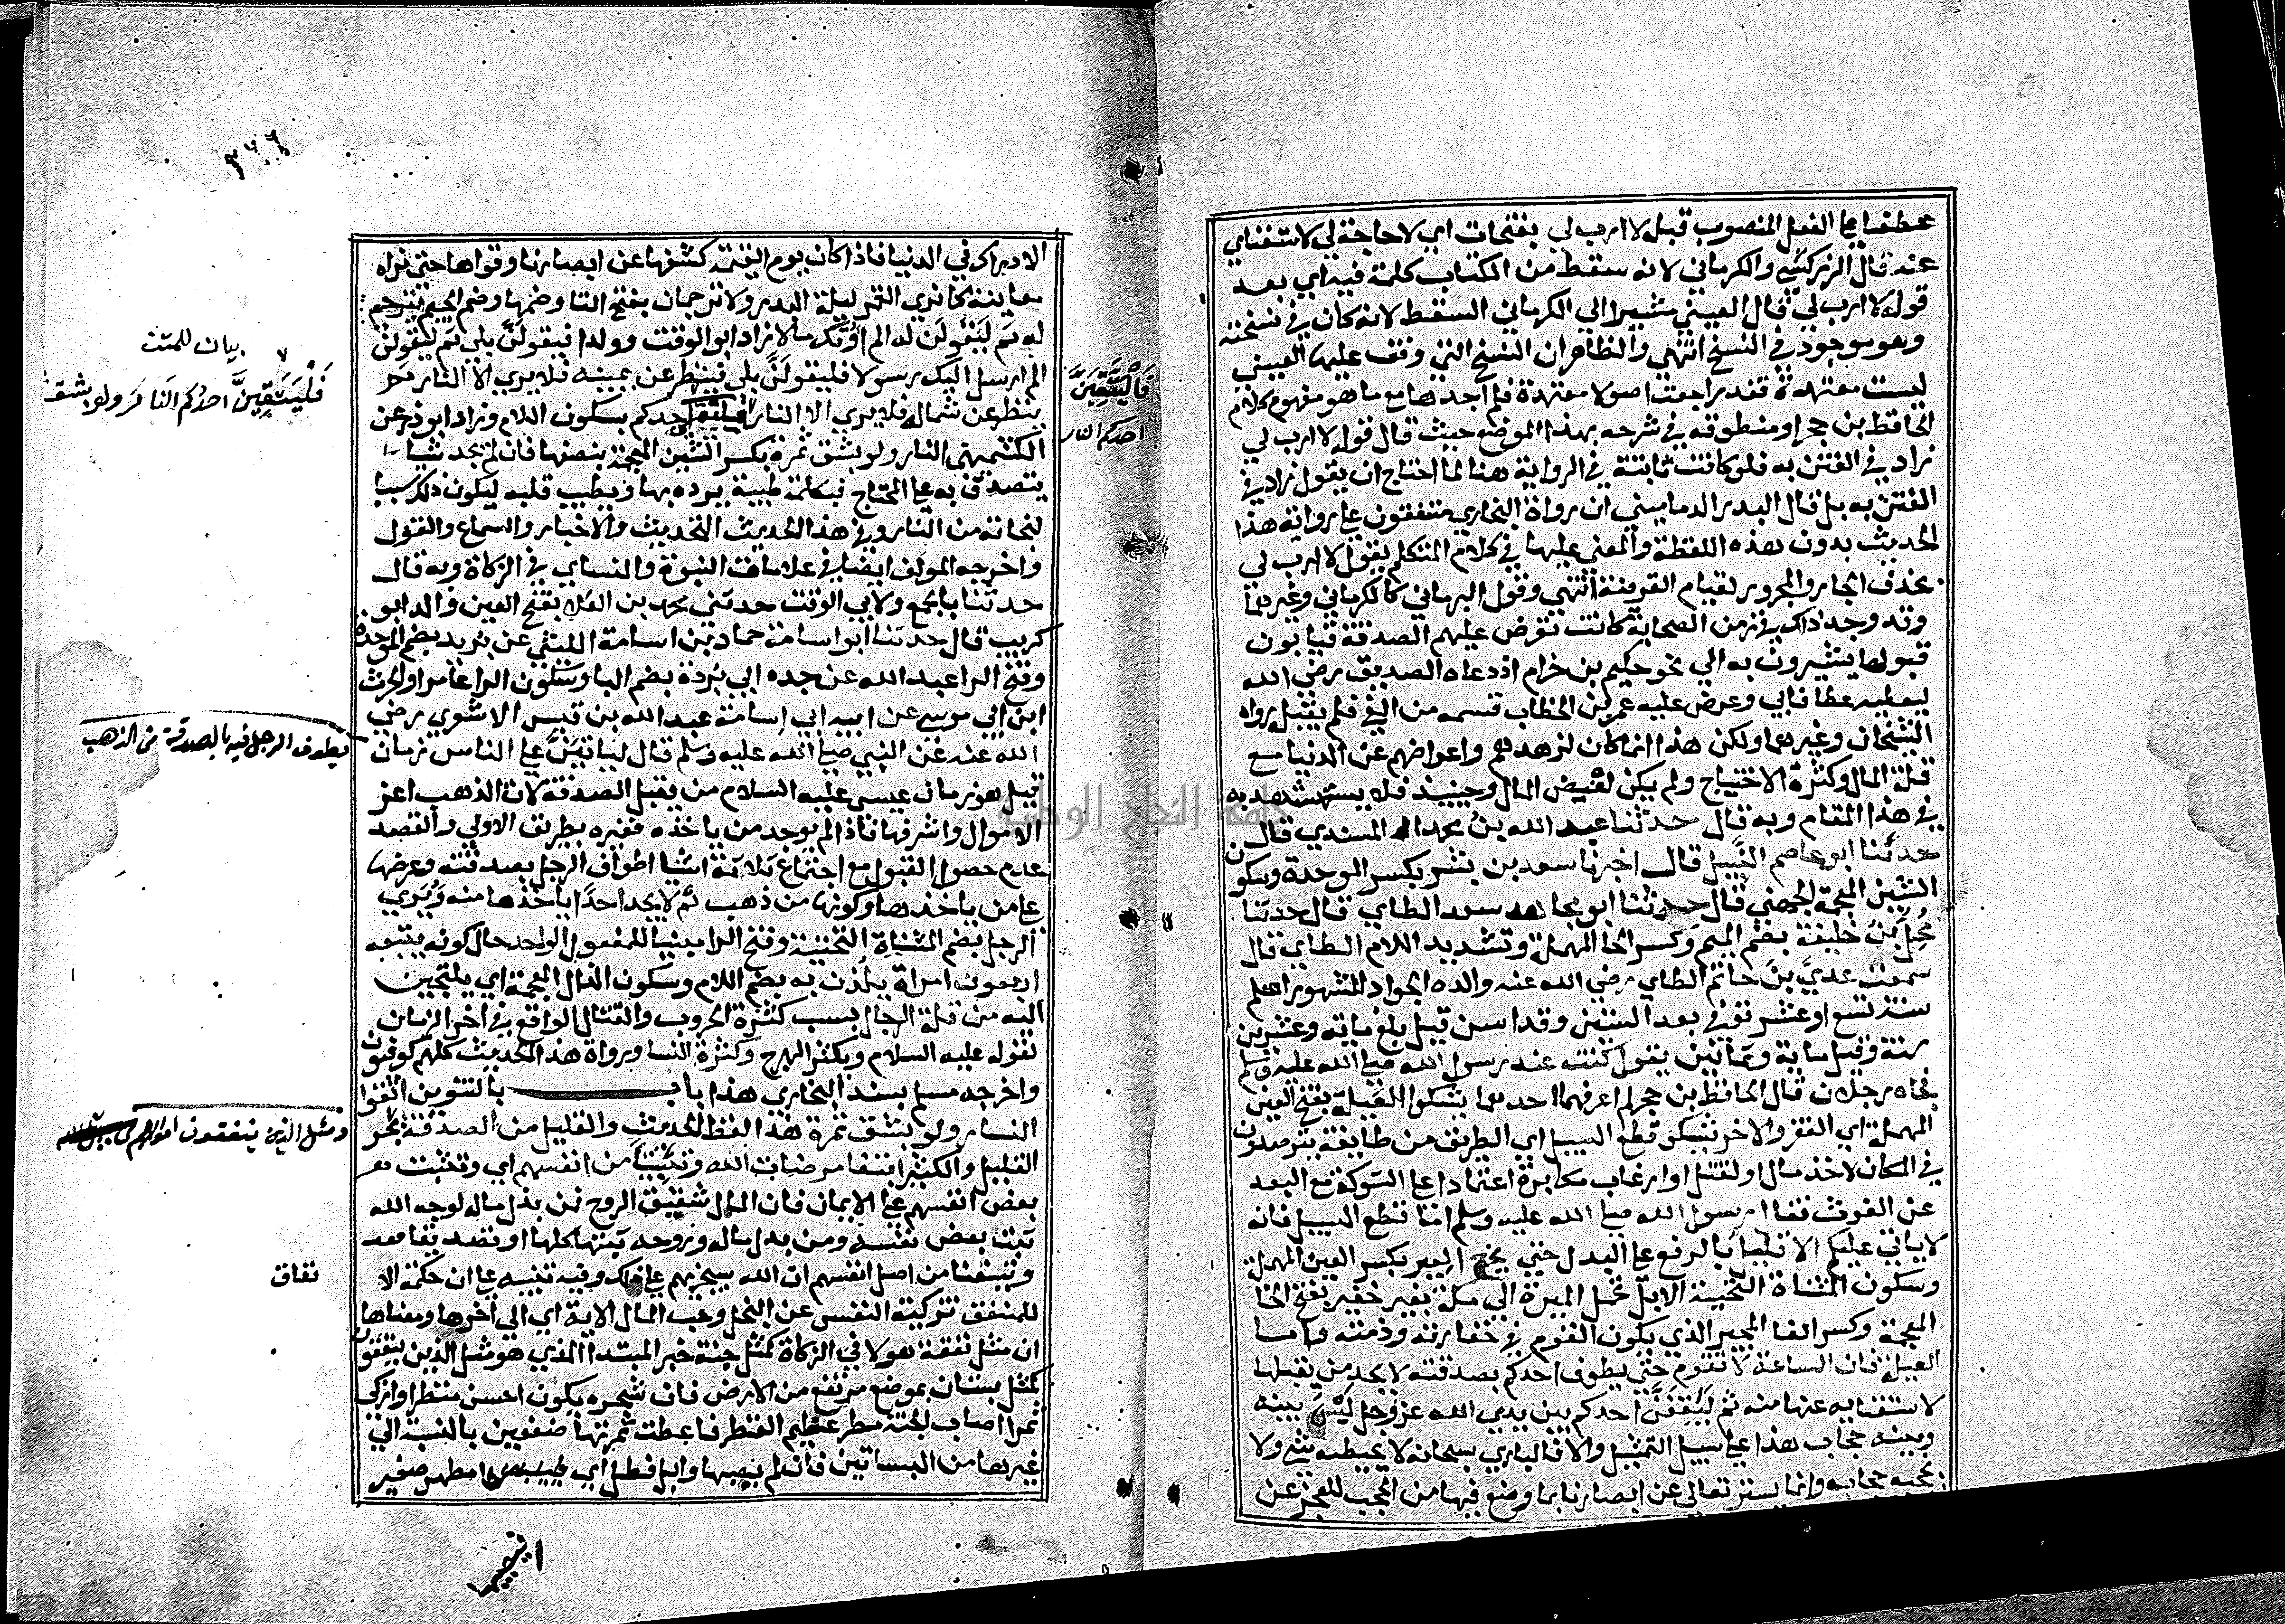 عطفا على الفعل المنصوب قبله لا ارب لي بفتحات اي لا حاجة لي لاستغناي
عنه قال الزركشي والكرماني لانه سقط من الكتاب كلمة فيه اي بعد
قوله لا ارب لي قال العيني مشيرا الي الكرماني السقط لانه كان في نسخته
وهو موجود في النسخ انتهي والظاهر ان النسخ التي وقف عليها العيني
ليست معتمدة فقد راجعت اصولا معتمدة فلم اجدها مع ما هو مفهوم كلام
الحافظ بن حجر او منطوقه في شرحه بهذا الموضع حيث قال قوله لا ارب لي
زاد في الفتن به فلو كانت ثابتة في الرواية هنا لما احتاج ان يقول زاد في
الفتن به بل قال البدر الدماميني ان رواة البخاري متفقون على رواية هذا
الحديث بدون هذه اللفظة والمعني عليها في كلام المتكلم بقول لا ارب لي
بحذف الجار والمجرور لقيام القرينة انتهي وقول البرماني كالكرماني وغيرهما
وقد وجد ذلك في زمن الصحابة كانت تعرض عليهم الصدقة فيابون
قبولها يشيرون به الي نحو حكيم بن حزام اذ دعاه الصديق رضي الله
ليعطيه عطا فابي وعرض عليه عمر بن الخطاب قسمه من الفي فلم يقبل رواه
الشيخان وغيرهما ولكن هذا انما كان لزهدهم واعراضهم عن الدنيا مع
قلة المال وكثرة الاحتياج ولم يكن لفيض المال وحينيذ فلا يستشهد به
في هذا المقام وبه قال حدثنا عبد الله بن محمد المسندي قال
حدثنا ابو عاصم النبيل قال اخبرنا سعد بن بشر بكسر الموحدة وسكون
الشين المعجمة الجهني قال حدثنا ابو مجاهد سعد الطاي قال حدثنا
محل بن خليفة بضم الميم وكسر الحا المهملة وتشديد اللام الطاي قال
سمعت عدي بن حاتم الطاي رضي الله عنه والده الجواد المشهور اسلم
سنة تسع او عشر توفي بعد الستين وقد اسن قيل بلغ ماية وعشرين
سنة وقيل ماية وثمانين يقول كنت عند رسول الله صلي الله عليه وسلم
فجاه رجلان قال الحافظ بن حجر لم اعرفهما احدهما يشكوا العيلة بفتح العين
المهملة اي الفقر والاخر يشكو قطع السبيل اي الطريق من طايفة يترصدون
في المكان لاخذ مال او لقتل او ارعاب مكابرة اعتمادا على الشوكة مع البعد
عن الغوث فقال رسول الله صلي الله عليه وسلم اما قطع السبيل فانه
لا ياتي عليكم الا قليل بالرفع على البدل حتي يخرج العير بكسر العين المهملة
وسكون المثناة التحتية الابل تحمل الميرة الي مكة بغير خفير بفتح الخا
المعجمة وكسر الفا المجير الذي يكون القوم في خفارته وذمته واما
العيلة فان الساعة لا تقوم حتي يطوف احدكم بصدقته لا يجد من يقبلها
لاستغنايه عنها منه ثم ليقفن احدكم بين يدي الله عز وجل ليس بينه
وبينه حجاب هذا على سبيل التمثيل والا فالباري سبحانه لا يحيط به شي ولا
يحجبه حجاب وانما يستر تعالي عن ابصارنا بما وضع فيها من الحجب للعجز عن
٣٦٦
الادراك في الدنيا فاذا كان يوم القيمة كشفها عن ابصارنا وقواها حتي نراه
معاينة كما نري القمر ليلة البدر ولا ترجمان بفتح التا وضمها وضم الجيم يترجم
له ثم ليقولن له الم اوتك مالا زاد ابو الوقت وولدا فيقولن بلي ثم ليقولن
الم ارسل اليك رسولا فليقولن بلي فينظر عن يمينه فلا يري الا النار ثم
ينظر عن شماله فلا يري الا النار فليتقين احدكم بسكون اللام وزاد ابو ذر عن
الكشميهني النار ولو بشق تمرة بكسر الشين المعجمة بنصفها فان لم يجد شيا
يتصدق به على المحتاج فبكلمة طيبة يرده بها ويطيب قلبه ليكون ذلك سببا
لنجاته من النار وفي هذا الحديث التحديث والاخبار والسماع والقول
واخرجه المولف ايضا في علامات النبوة والنساي في الزكاة وبه قال
حدثنا بالجمع ولابي الوقت حدثني محمد بن العلا بفتح العين والد ابو
كريب قال حدثنا ابو اسامة حماد بن اسامة الليثي عن بريد بضم الموحدة
وفتح الرا عبد الله عن جده ابي بردة بضم البا وسكون الرا عامر او الحرث
ابن ابي موسي عن ابيه ابي اسامة عبد الله بن قيس الاشعري رضي
الله عنه عن النبي صلي الله عليه وسلم قال لياتين على الناس زمان
قيل هو زمان عيسي عليه السلام من يقبل الصدقة لان الذهب اعز
الاموال واشرفها فاذا لم يوجد من ياخذه فغيره بطريق الاولي والقصد
عدم حصول القبول مع اجتماع ثلاثة اشيا طواف الرجل بصدقته وعرضها
على من ياخذها وكونها من ذهب ثم لا يجد احدا ياخذها منه ويري
الرجل بضم المثناة التحتية وفتح الرا مبنيا للمفعول الواحد حال كونه يتبعه
اربعون امراة يلذن به بضم اللام وسكون الذال المعجمة اي يلتجين
اليه من قلة الرجال بسبب كثرة الحروب والقتال الواقع في اخر الزمان
لقوله عليه السلام ويكثر الهرج وكثرة النسا ورواة هذا الحديث كلهم كوفيون
واخرجه مسلم بسند البخاري هذا باب بالتنوين اتقوا
النار ولو بشق تمرة هذا لفظ الحديث والقليل من الصدقة بجر
القليل والكثير ابتغا مرضات الله وتثبيتا من انفسهم اي وتثبت
بعض انفسهم على الايمان فان المال شقيق الروح فمن بذل ماله لوجه الله
ثبت بعض نفسه ومن بذل ماله وروحه ثبتها كلها او تصديقا
وتثبيتا من اصل انفسهم ان الله سيجزيهم على ذلك وفيه تنبيه على ان حكمة الا
للمنفق تزكية النفس عن البخل وحب المال الاية اي الي اخرها ومعناها
ان مثل نفقة هولا في الزكاة كمثل جنة خبر المبتدا الذي هو مثل الذين ينفقون
كمثل بستان بموضع مرتفع من الارض فان شجره يكون احسن منظرا وازكي
ثمرا اصاب الجنة مطر عظيم القطر فاعطت ثمرتها ضعفين بالنسبة الي
غيرها من البساتين فان لم يصبها وابل فطل اي فيصيبها مطر صغير
فليتقين
احدكم النار
بيان للمتن
فليتقين احدكم النار ولو بشق
يطوف الرجل فيه بالصدقة من الذهب
ومثل الذين ينفقون اموالهم
نفاق